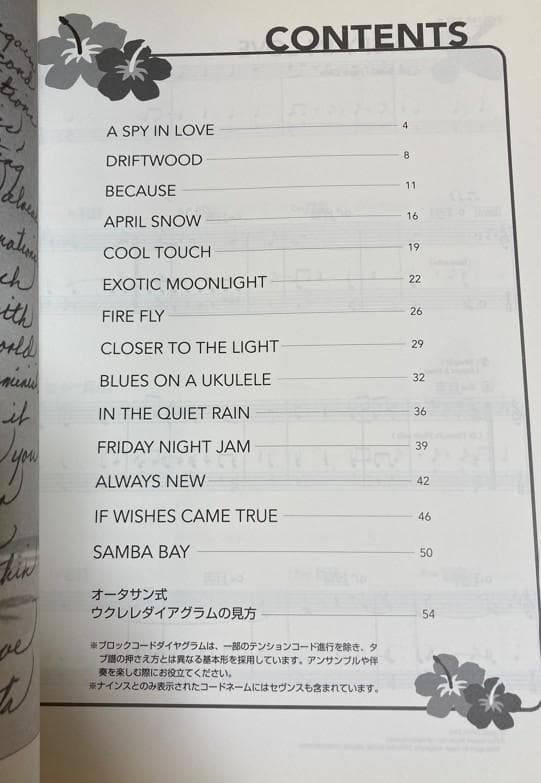 CONTENTS
A SPY IN LOVE 4
DRIFTWOOD 8
BECAUSE 11
APRIL SNOW 16
COOL TOUCH 19
EXOTIC MOONLIGHT 22
FIRE FLY 26
CLOSER TO THE LIGHT 29
BLUES ON A UKULELE 32
IN THE QUIET RAIN 36
FRIDAY NIGHT JAM 39
ALWAYS NEW 42
IF WISHES CAME TRUE 46
SAMBA BAY 50
オータサン式
ウクレレダイアグラムの見方 54
※ブロックコードダイヤグラムは、一部のテンションコード進行を除き、タ
ブ譜の押さえ方とは異なる基本形を採用しています。アンサンブルや伴
奏を楽しむ際にお役立てください。
※ナインスとのみ表示されたコードネームにはセヴンスも含まれています。